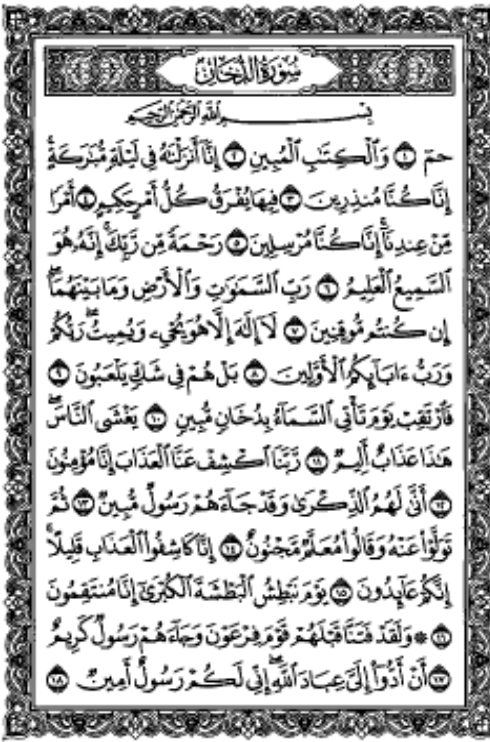 سُورَةُ الدُّخَانِ
بِسْمِ اللَّهِ الرَّحْمَٰنِ الرَّحِيمِ
حمٓ ١ وَٱلْكِتَٰبِ ٱلْمُبِينِ ٢ إِنَّآ أَنزَلْنَٰهُ فِى لَيْلَةٍ مُّبَٰرَكَةٍ
إِنَّا كُنَّا مُنذِرِينَ ٣ فِيهَا يُفْرَقُ كُلُّ أَمْرٍ حَكِيمٍ ٤ أَمْرًا
مِّنْ عِندِنَآ إِنَّا كُنَّا مُرْسِلِينَ ٥ رَحْمَةً مِّن رَّبِّكَ إِنَّهُۥ هُوَ
ٱلسَّمِيعُ ٱلْعَلِيمُ ٦ رَبِّ ٱلسَّمَٰوَٰتِ وَٱلْأَرْضِ وَمَا بَيْنَهُمَآ
إِن كُنتُم مُّوقِنِينَ ٧ لَآ إِلَٰهَ إِلَّا هُوَ يُحْىِۦ وَيُمِيتُ رَبُّكُمْ
وَرَبُّ ءَابَآئِكُمُ ٱلْأَوَّلِينَ ٨ بَلْ هُمْ فِى شَكٍّ يَلْعَبُونَ ٩
فَٱرْتَقِبْ يَوْمَ تَأْتِى ٱلسَّمَآءُ بِدُخَانٍ مُّبِينٍ ١٠ يَغْشَى ٱلنَّاسَ
هَٰذَا عَذَابٌ أَلِيمٌ ١١ رَّبَّنَا ٱكْشِفْ عَنَّا ٱلْعَذَابَ إِنَّا مُؤْمِنُونَ
١٢ أَنَّىٰ لَهُمُ ٱلذِّكْرَىٰ وَقَدْ جَآءَهُمْ رَسُولٌ مُّبِينٌ ١٣ ثُمَّ
تَوَلَّوْا۟ عَنْهُ وَقَالُوا۟ مُعَلَّمٌ مَّجْنُونٌ ١٤ إِنَّا كَاشِفُوا۟ ٱلْعَذَابِ قَلِيلًا
إِنَّكُمْ عَآئِدُونَ ١٥ يَوْمَ نَبْطِشُ ٱلْبَطْشَةَ ٱلْكُبْرَىٰٓ إِنَّا مُنتَقِمُونَ
١٦ ۞ وَلَقَدْ فَتَنَّا قَبْلَهُمْ قَوْمَ فِرْعَوْنَ وَجَآءَهُمْ رَسُولٌ كَرِيمٌ
١٧ أَنْ أَدُّوٓا۟ إِلَىَّ عِبَادَ ٱللَّهِ إِنِّى لَكُمْ رَسُولٌ أَمِينٌ ١٨